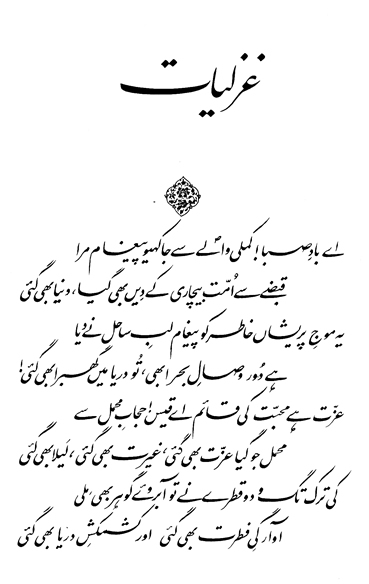 غزلیات
اے بادِ صبا! کملی والےؐ سے جا کہیو پیغام مرا
قبضے سے اُمّت بیچاری کے دِیں بھی گیا، دنیا بھی گئی
یہ موجِ پریشاں خاطر کو پیغام لبِ ساحل نے دیا
ہے دُور وصالِ بحر ابھی، تُو دریا میں گھبرا بھی گئی!
عزّت ہے محبّت کی قائم اے قیس! حجابِ محمل سے
محمل جو گیا عزّت بھی گئی، غیرت بھی گئی، لیلا بھی گئی
کی ترک تگ و دو قطرے نے تو آبروئے گوہر بھی ملی
آوارگیِ فطرت بھی گئی اور کشمکشِ دریا بھی گئی